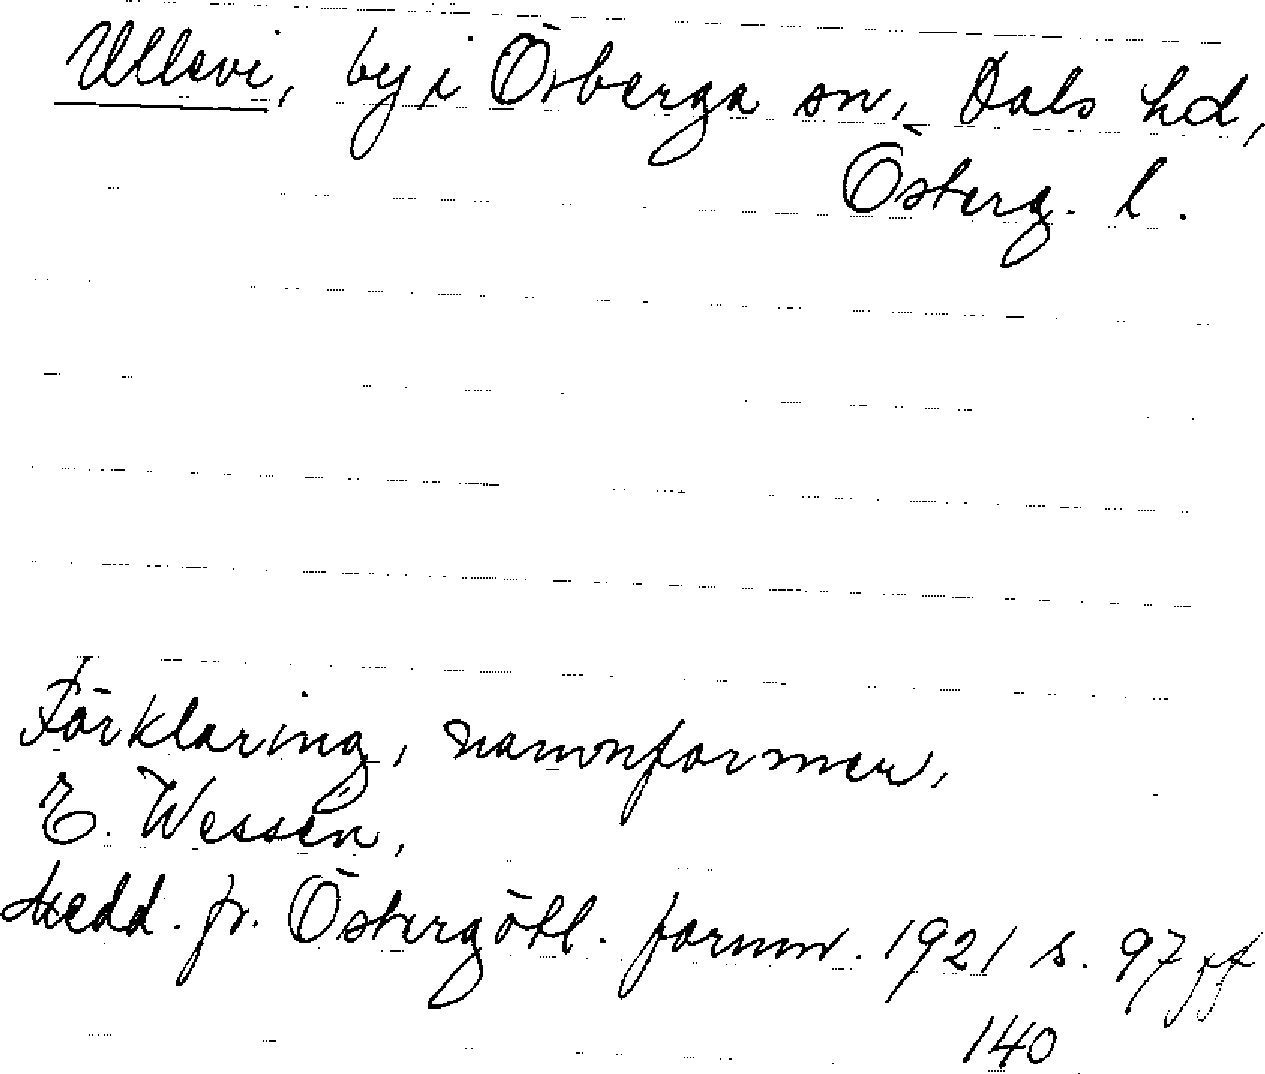 Ullevi, by i Örberga sn, Dals hd,
Österg. l.
Förklaring, namnformer,
E. Wessén,
Medd. fr. Östergötl. fornm. 1921 s. 97 ff
140